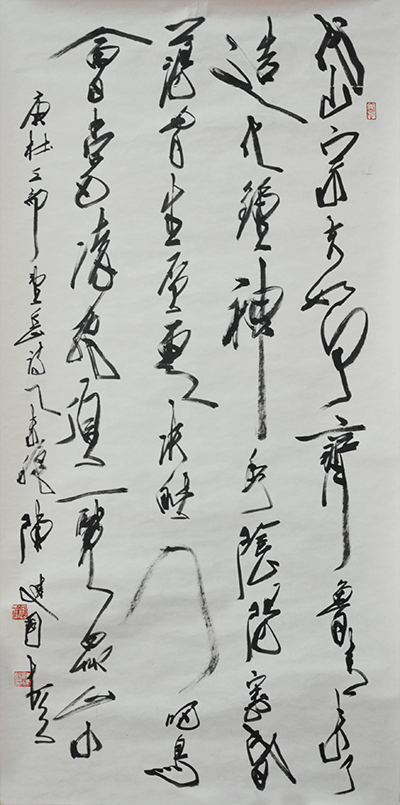 岱宗夫如何齊魯青未了
造化鍾神秀陰陽割昏
蕩胸生層雲決眥入歸鳥
會當凌絕頂一覽眾山小
唐杜工部望岳詩